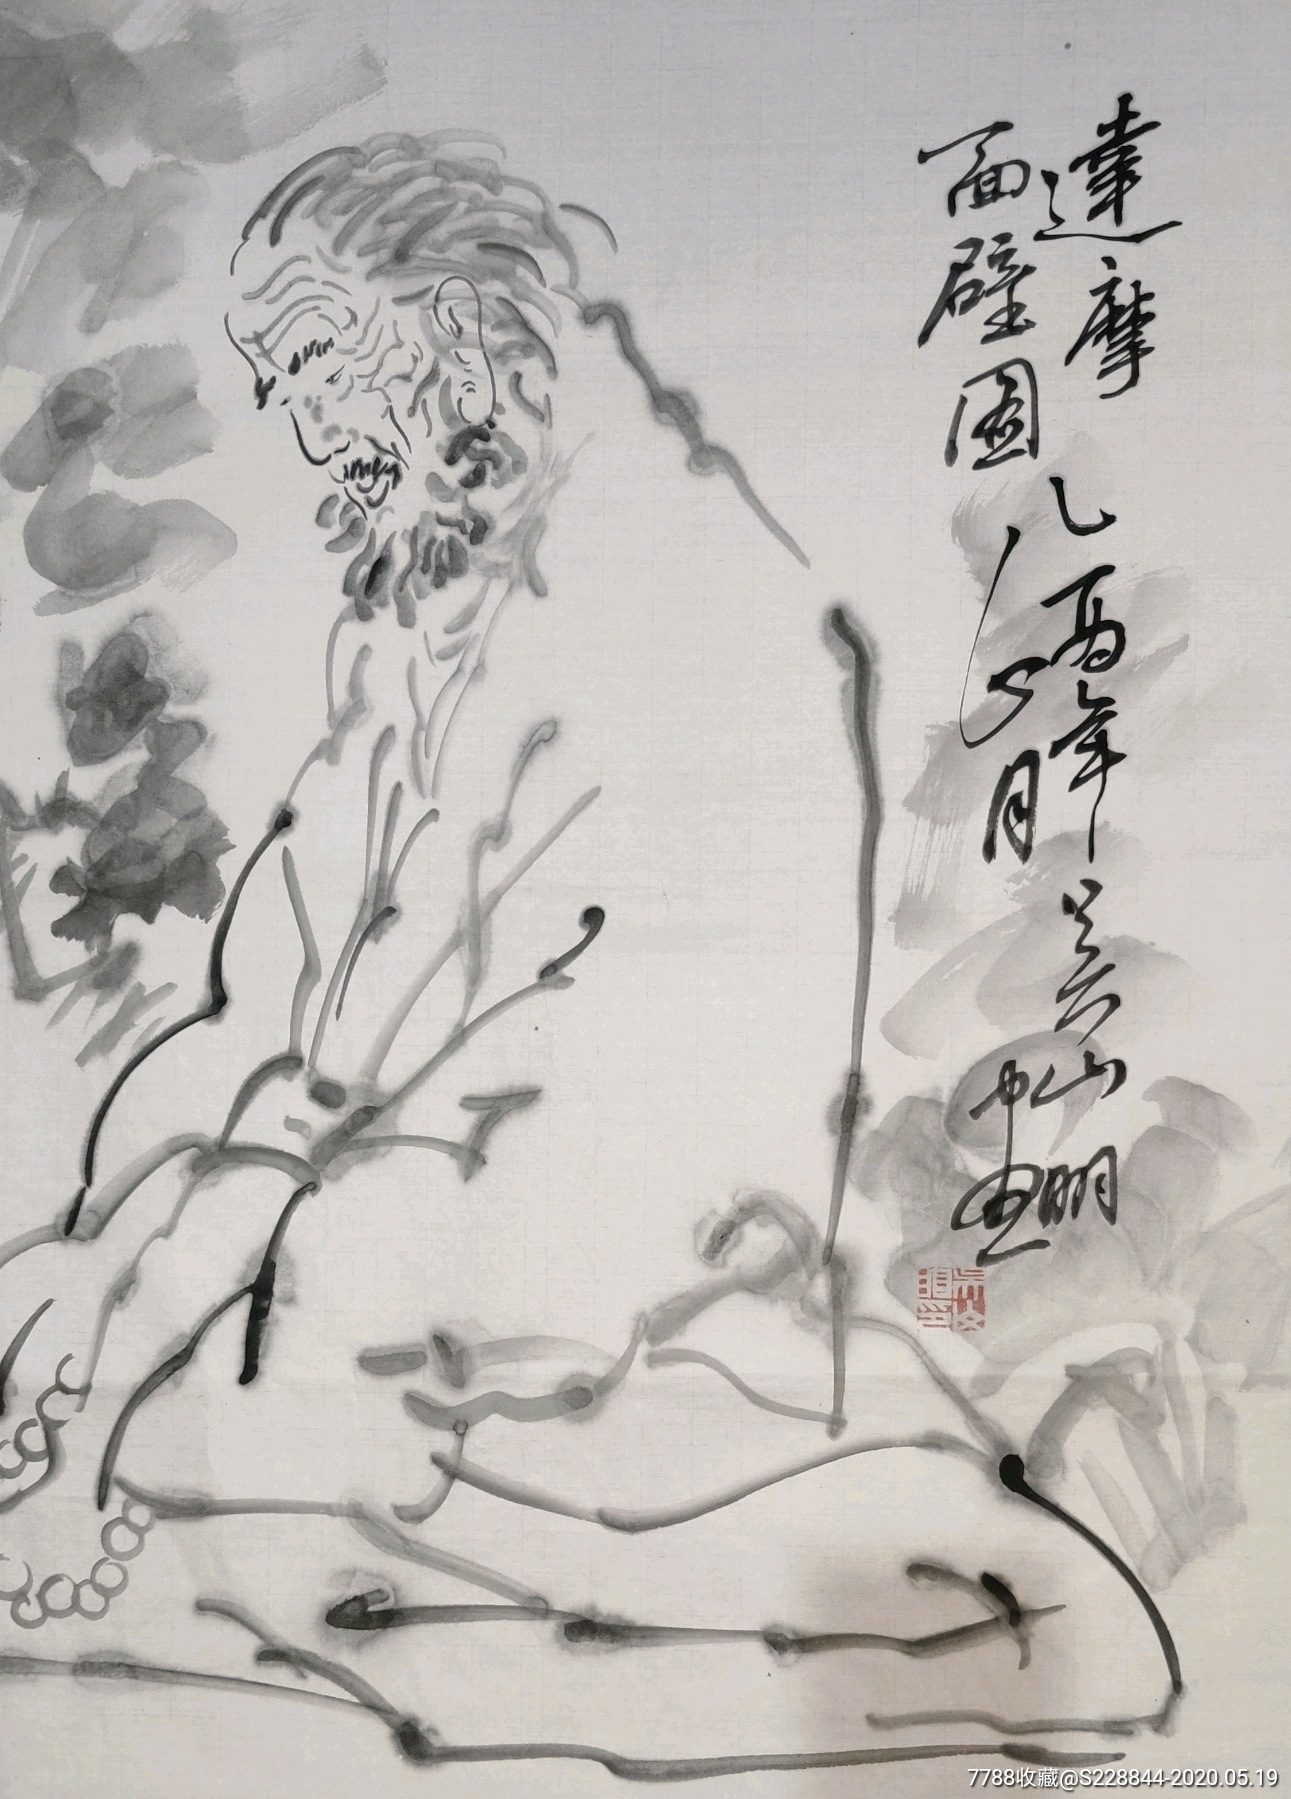 達摩
面壁图
乙酉年
八月
吴山明
中画
7788收藏@S228844-2020.05.19